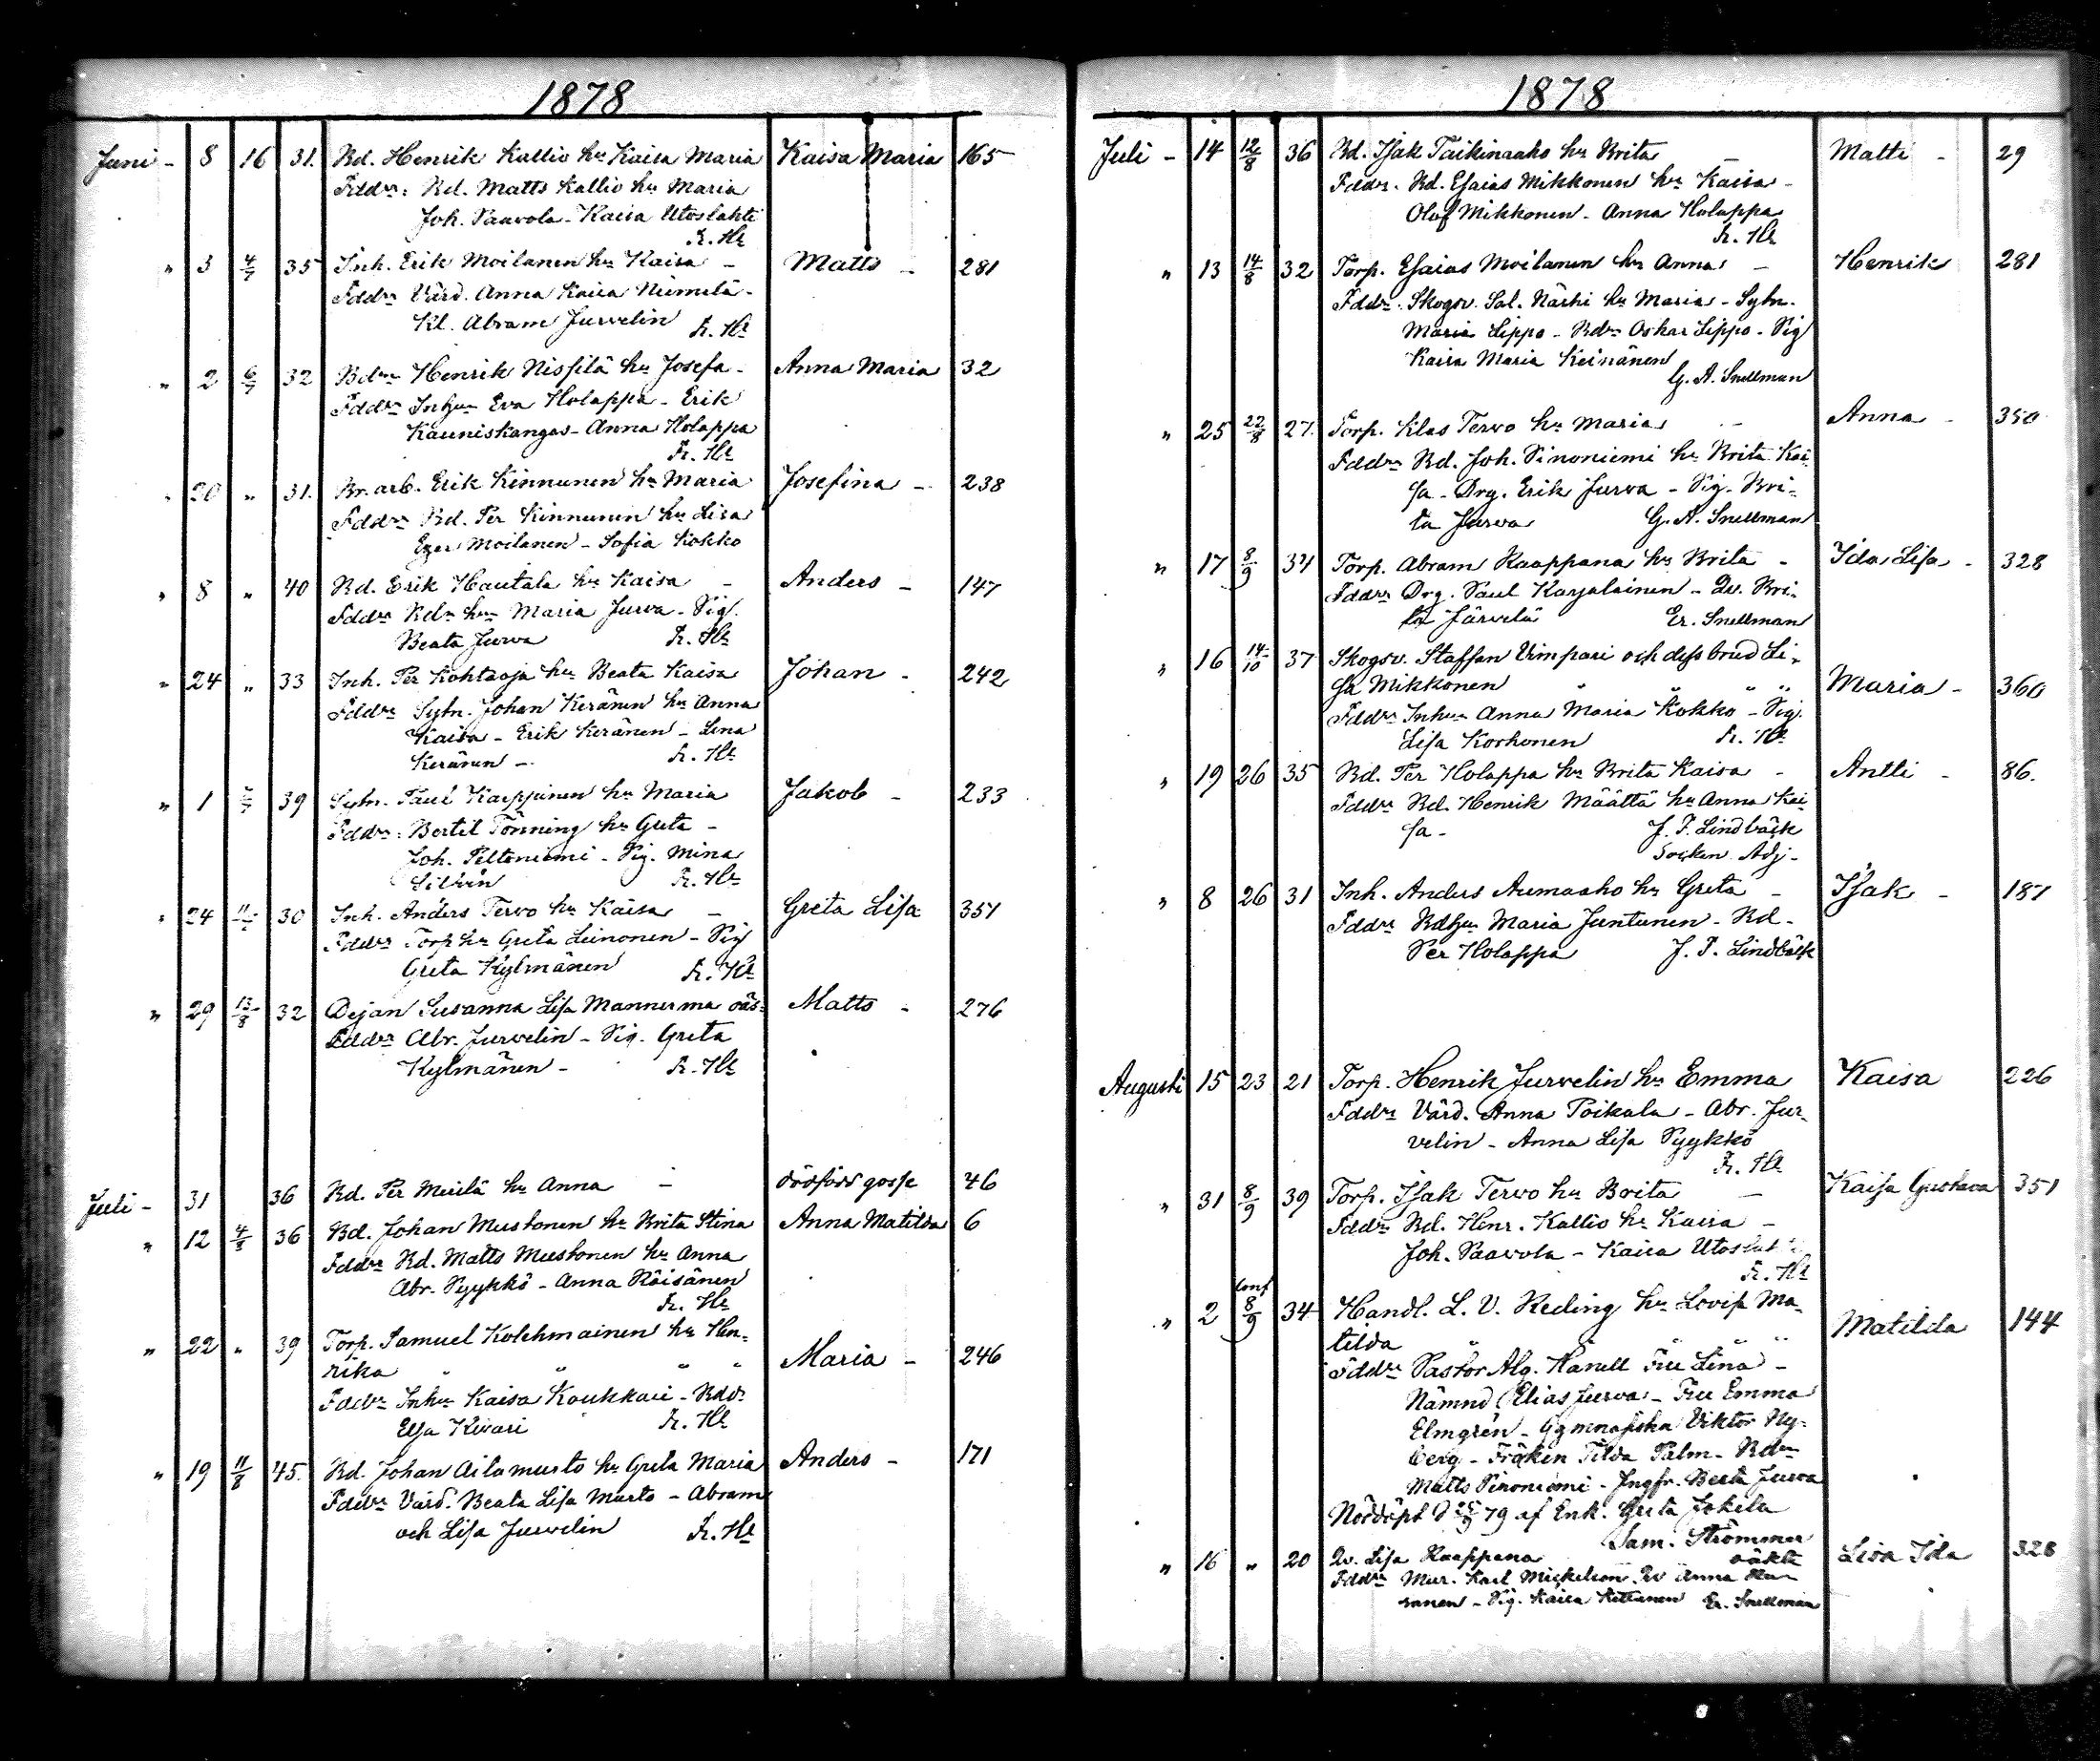 1878
Juni - 8 16 31. Bd. Henrik Kallio hu Kaisa Maria Kaisa Maria 165
Fddr: Bd. Matts Kallio hu Maria
Joh. Paavola - Kaisa Utoslahti
Fr. Hl
" 3 4/7 35 Inh. Erik Moilanen hu Kaisa - Matts - 281
Fddr Värd. Anna Kaisa Niemelä -
Kl. Abram Jurvelin Fr. Hl
" 2 6/7 32 Bdm Henrik Nissilä hu Josefa - Anna Maria 32
Fddr Inhu Eva Holappa - Erik
Kauniskangas - Anna Holappa
Fr. Hl
" 20 " 31. Br. arb. Erik Kinnunen hu Maria Josefina - 238
Fddr Bd. Per Kinnunen hu Lisa
Ezer Moilanen - Sofia Kokko
" 8 " 40 Bd. Erik Hautala hu Kaisa - Anders - 147
Fddr Bdn hu Maria Jurva - Pig.
Beata Jurva Fr. Hl
" 24 " 33 Inh. Per Kohtaoja hu Beata Kaisa Johan - 242
Fddr Sytn. Johan Keränen hu Anna
Kaisa - Erik Keränen - Lena
Keränen - Fr. Hl
" 1 39 Sytn. Paul Karppinen hu Maria Jakob - 233
Fddr: Bertil Tönning hu Greta -
Joh. Peltoniemi - Pig. Mina
Fr. Hl
" 24 30 Inh. Anders Tervo hu Kaisa - Greta Lisa 351
Fddr Torp hu Greta Leinonen - Pig
Greta Kylmänen Fr. Hl
" 29 13/8 32 Dejan Susanna Lisa Mannerma oäs= Matts - 276
Fddr Abr. Jurvelin - Pig. Greta
Kylmänen - Fr. Hl
Juli - 31 36 Bd. Per Merilä hu Anna - dödfödd gosse 46
" 12 4/8 36 Bd. Johan Mustonen hu Brita Stina Anna Matilda 6
Fddr Bd. Matts Mustonen hu Anna
Abr. Pyykkö - Anna Räisänen
Fr. Hl
" 22 " 39 Torp. Samuel Kolehmainen hu Hen=
rika " " " " Maria - 246
Fddr Inhu Kaisa Koukkari - Bddr
Elsa Kivari Fr. Hl
" 19 11/8 45. Bd. Johan Aitamurto hu Greta Maria Anders - 171
Fddr Värd. Beata Lisa Murto - Abram
och Lisa Jurvelin Fr. Hl
1878
Juli - 14 12/8 36 Bd. Isak Taikinaaho hu Brita - Matti - 29
Fddr. Bd. Esaias Mikkonen hu Kaisa -
Olof Mikkonen - Anna Holappa
Fr. Hl
" 13 14/8 32 Torp. Esaias Moilanen hu Anna - Henrik 281
Fddr. Skogsv. Sal. Närhi hu Maria - Sytn.
Maria Lippo - Bdr Oskar Lippo - Pig
Kaisa Maria Keinänen
G. A. Snellman
" 25 22/8 27. Torp. Klas Tervo hu Maria - Anna - 350
Fddr Bd. Joh. Pinoniemi hu Brita Kai-
sa - Drg. Erik Jurva - Pig. Bri=
ta Jurva G. A. Snellman
" 17 8/9 34 Torp. Abram Kaappana hu Brita - Ida Lisa - 328
Fddr Drg. Paul Karjalainen - Qv. Bri-
ta Järvelä Er. Snellman
" 16 14/10 37 Skogsv. Staffan Vimpari och dess brud Li-
sa Mikkonen " " " " Maria - 360
Fddr Inhu Anna Maria Kokko - Pig.
Lisa Korhonen Fr. Hl
" 19 26 35 Bd. Per Holappa hu Brita Kaisa - Antti - 86.
Fddr Bd. Henrik Määttä hu Anna Kai
sa - J. F. Lindbäck
Socken. Adj-
" 8 26 31 Inh. Anders Aumaaho hu Greta - Isak - 187
Fddr Bdhu Maria Juntunen - Bd -
Per Holappa J. F. Lindbäck
Augusti 15 23 21 Torp. Henrik Jurvelin hu Emma Kaisa 226
Fddr Värd. Anna Poikala - Abr. Jur-
velin - Anna Lisa Pyykkö
Fr. Hl
" 31 8/9 39 Torp. Isak Tervo hu Brita - Kaisa Gustava 351
Fddr Bd. Henr. Kallio hu Kaisa -
Joh. Paavola - Kaisa Utoslahti
Fr. Hl
" 2 conf 8/9 34 Handl. L. V. Reding hu Lovisa Ma-
tilda " " " " Matilda 144
Fddr Pastor Alg. Hanell Fru Lina -
Nämnd Elias Jurva - Fru Emma
Elmgrén - Gymnasiska Viktor Ny-
berg - Fröken Tilda Palm - Bdr
Matts Pinoniemi - Jngfr. Beata Jurva
Nöddöpt d 79 af Enk. Greta Jokela
Sam. Strömmer
" 16 " 20 Qv. Lisa Kaappana oäkta Lisa Ida 328
Fddr Mur. Karl Mickelson. Qv Anna
nen - Pig. Kaisa Kettunen Er. Snellman